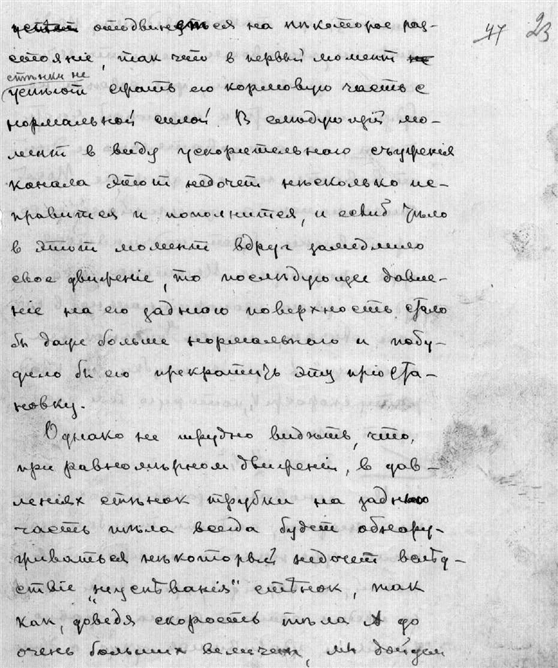 47 23
отодвинется на нѣкоторое раз-
стояніе, так что в первый момент
стѣнки не
успѣют сжать его кормовую часть с
нормальной силой. В слѣдующій мо-
мент в виду ускорительнаго съуженія
канала этот недочет нѣсколько ис-
правится и пополнится, и если б тѣло
в этот момент вдруг замедлило
свое движеніе, то послѣдующее давле-
ніе на его заднюю поверхность стало
бы даже больше нормальнаго и побу-
дило бы его прекратить эту пріоста-
новку.
Однако не трудно видѣть, что,
при равномѣрном движеніи, в дав-
леніях стѣнок трубки на заднюю
часть тѣла всегда будет обнару-
живаться нѣкоторый недочет вслѣд-
ствіе „неуспѣванія" стѣнок, так
как, доведя скорость тѣла до
очень больших величин, мы дойдем